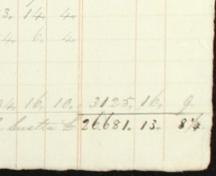 3. 14. 4.
4. 6. 4.
4. 16. 10. 3125. 16. 9
26681. 13. 8¼